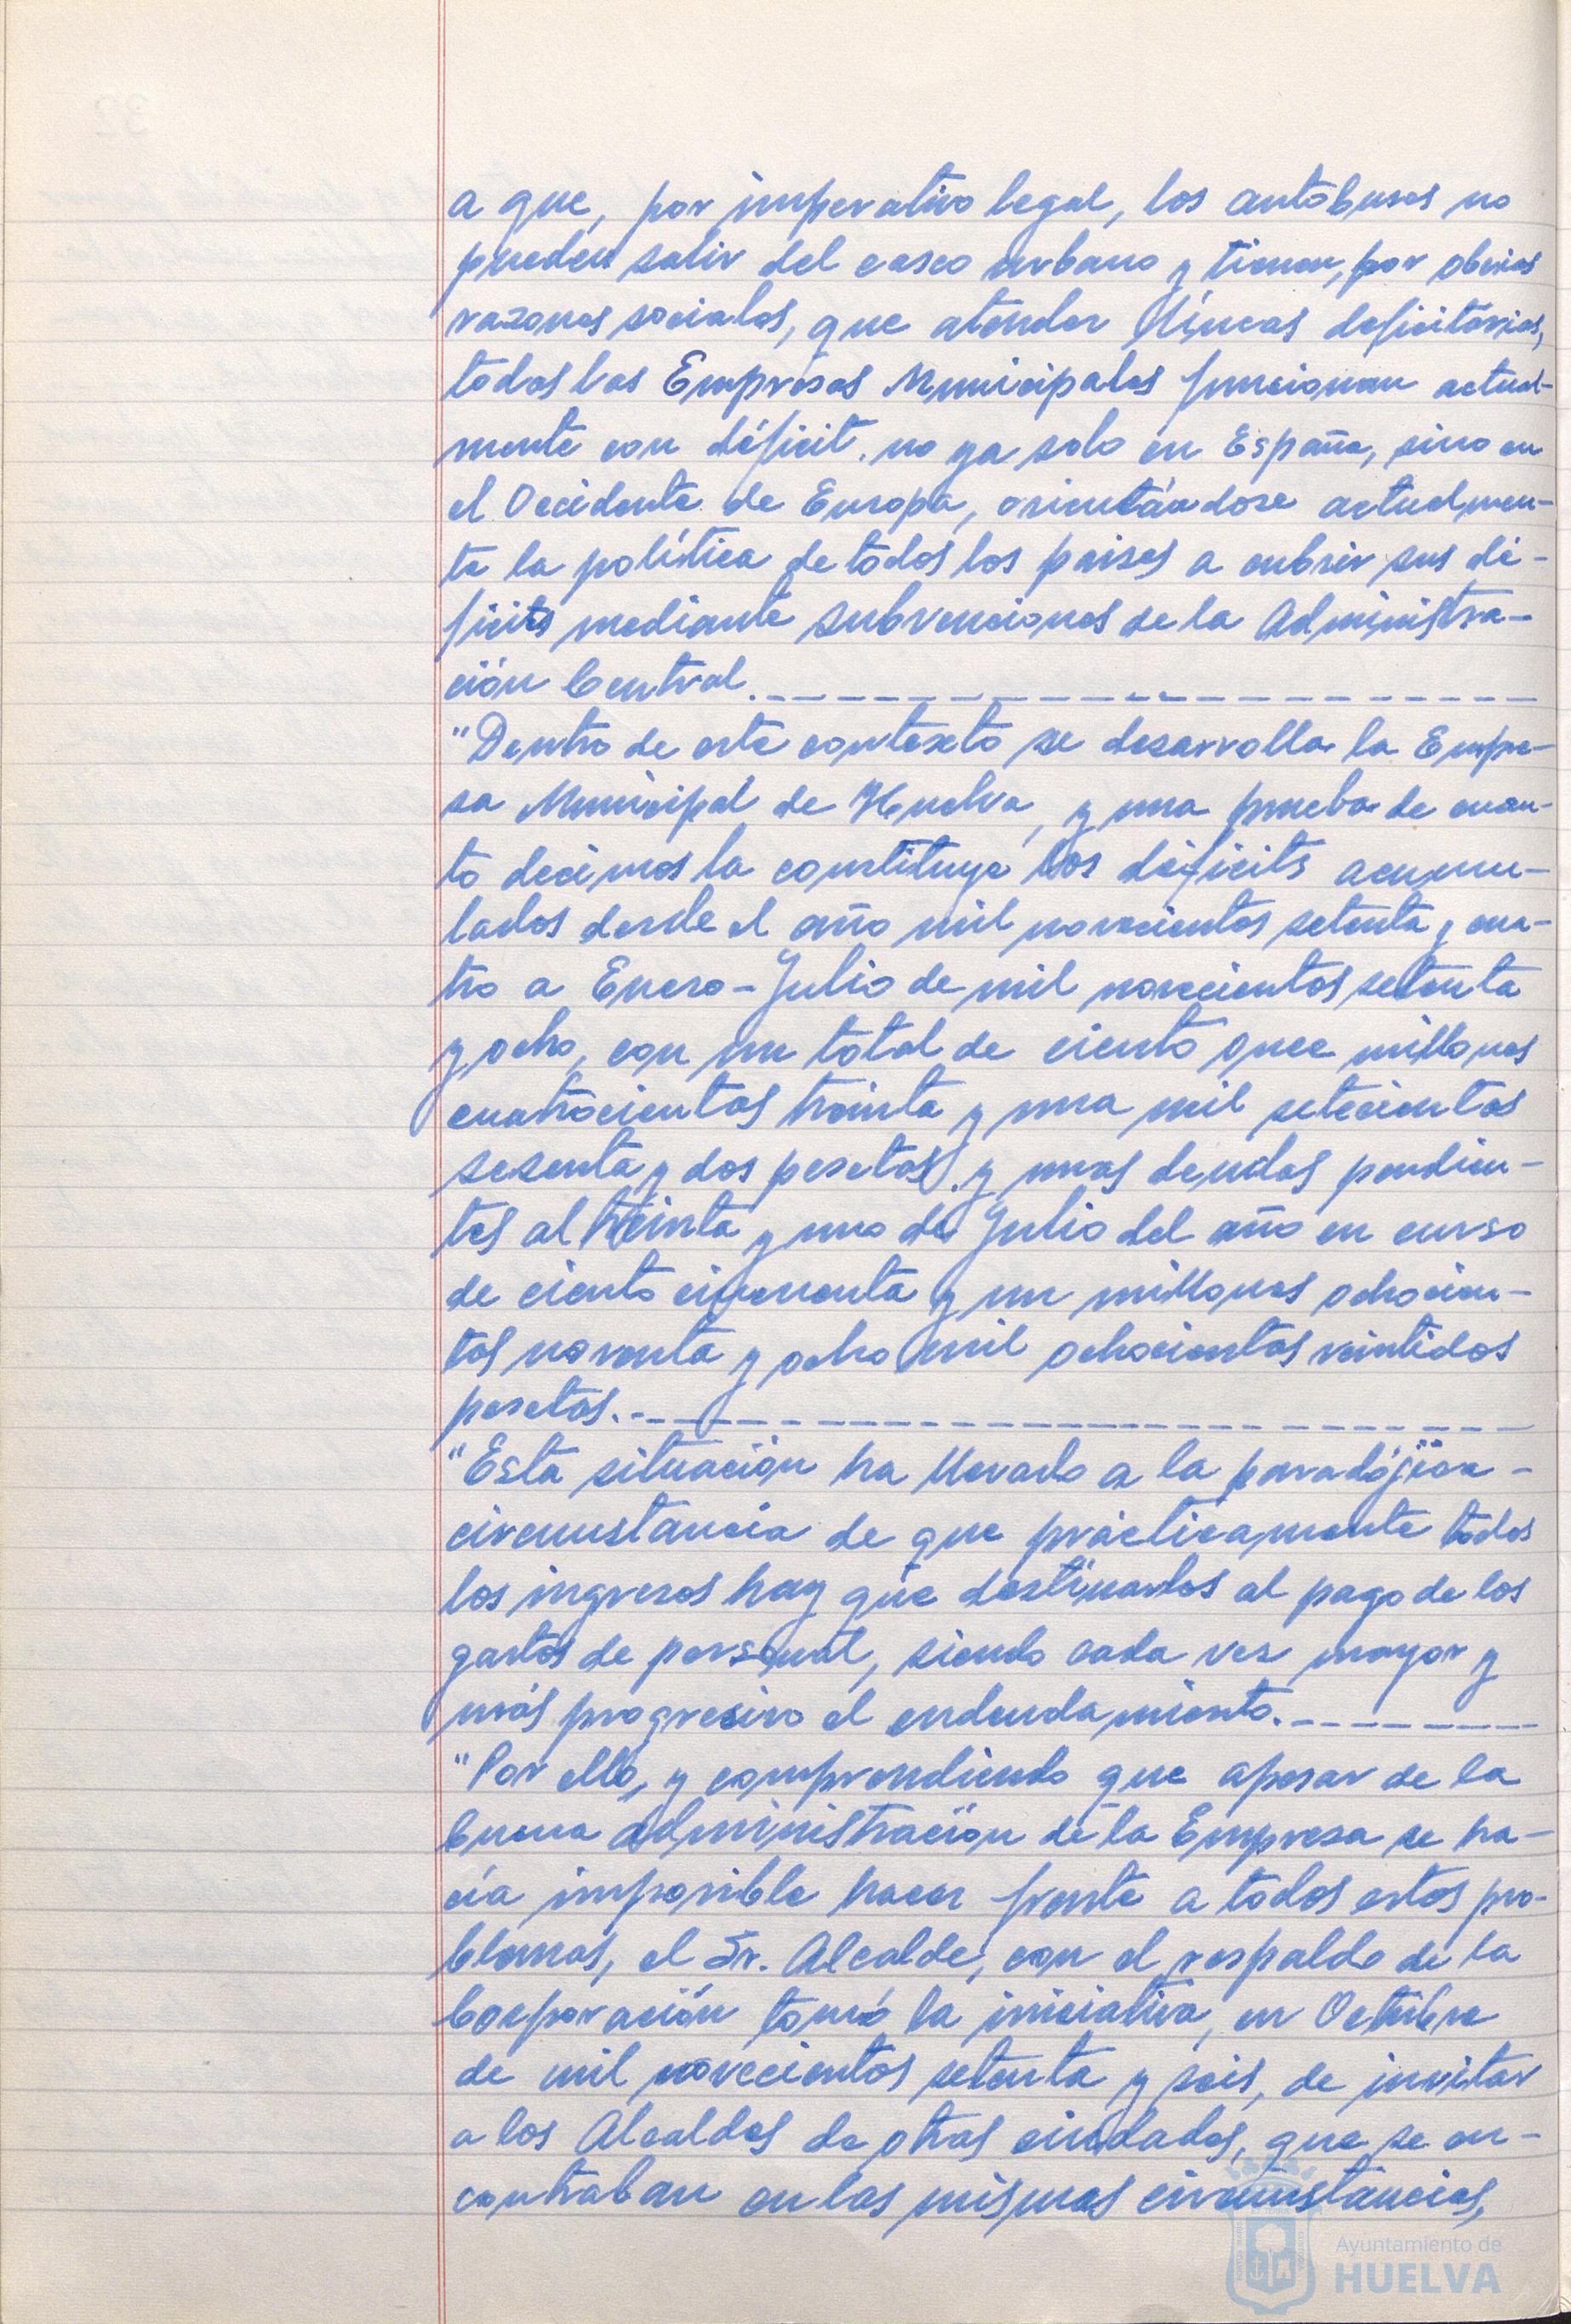 a que, por imperativo legal, los autobuses no
pueden salir del casco urbano y tienen, por obvias
razones sociales, que atender líneas deficitarias,
todas las Empresas Municipales funcionan actual-
mente con déficit. no ya solo en España, sino en
el Occidente de Europa, orientándose actualmen-
te la política de todos los paises a cubrir sus dé-
ficits mediante subvenciones de la Administra-
ción Central.
"Dentro de este contexto se desarrolla la Empre-
sa Municipal de Huelva, y una prueba de cuan-
to decimos la constituye los déficits acumu-
lados desde el año mil novecientos setenta y cua-
tro a Enero-Julio de mil novecientos setenta
y ocho, con un total de ciento once millones
cuatrocientas treinta y una mil setecientas
sesenta y dos pesetas. y unas deudas pendien-
tes al treinta y uno de Julio del año en curso
de ciento cincuenta y un millones ochocien-
tas noventa y ocho mil ochocientas veintidos
pesetas.
"Esta situación ha llevado a la paradójica -
circunstancia de que prácticamente todos
los ingresos hay que destinarlos al pago de los
gastos de personal, siendo cada vez mayor y
más progresivo el endeudamiento.
"Por ello, y comprendiendo que apesar de la
buena administración de la Empresa se ha-
cía imposible hacer frente a todos estos pro-
blemas, el Sr. Alcalde, con el respaldo de la
Corporación tomó la iniciativa, en Octubre
de mil novecientos setenta y seis, de invitar
a los Alcaldes de otras ciudades, que se en-
contraban en las mismas circunstancias,
Ayuntamiento de
HUELVA